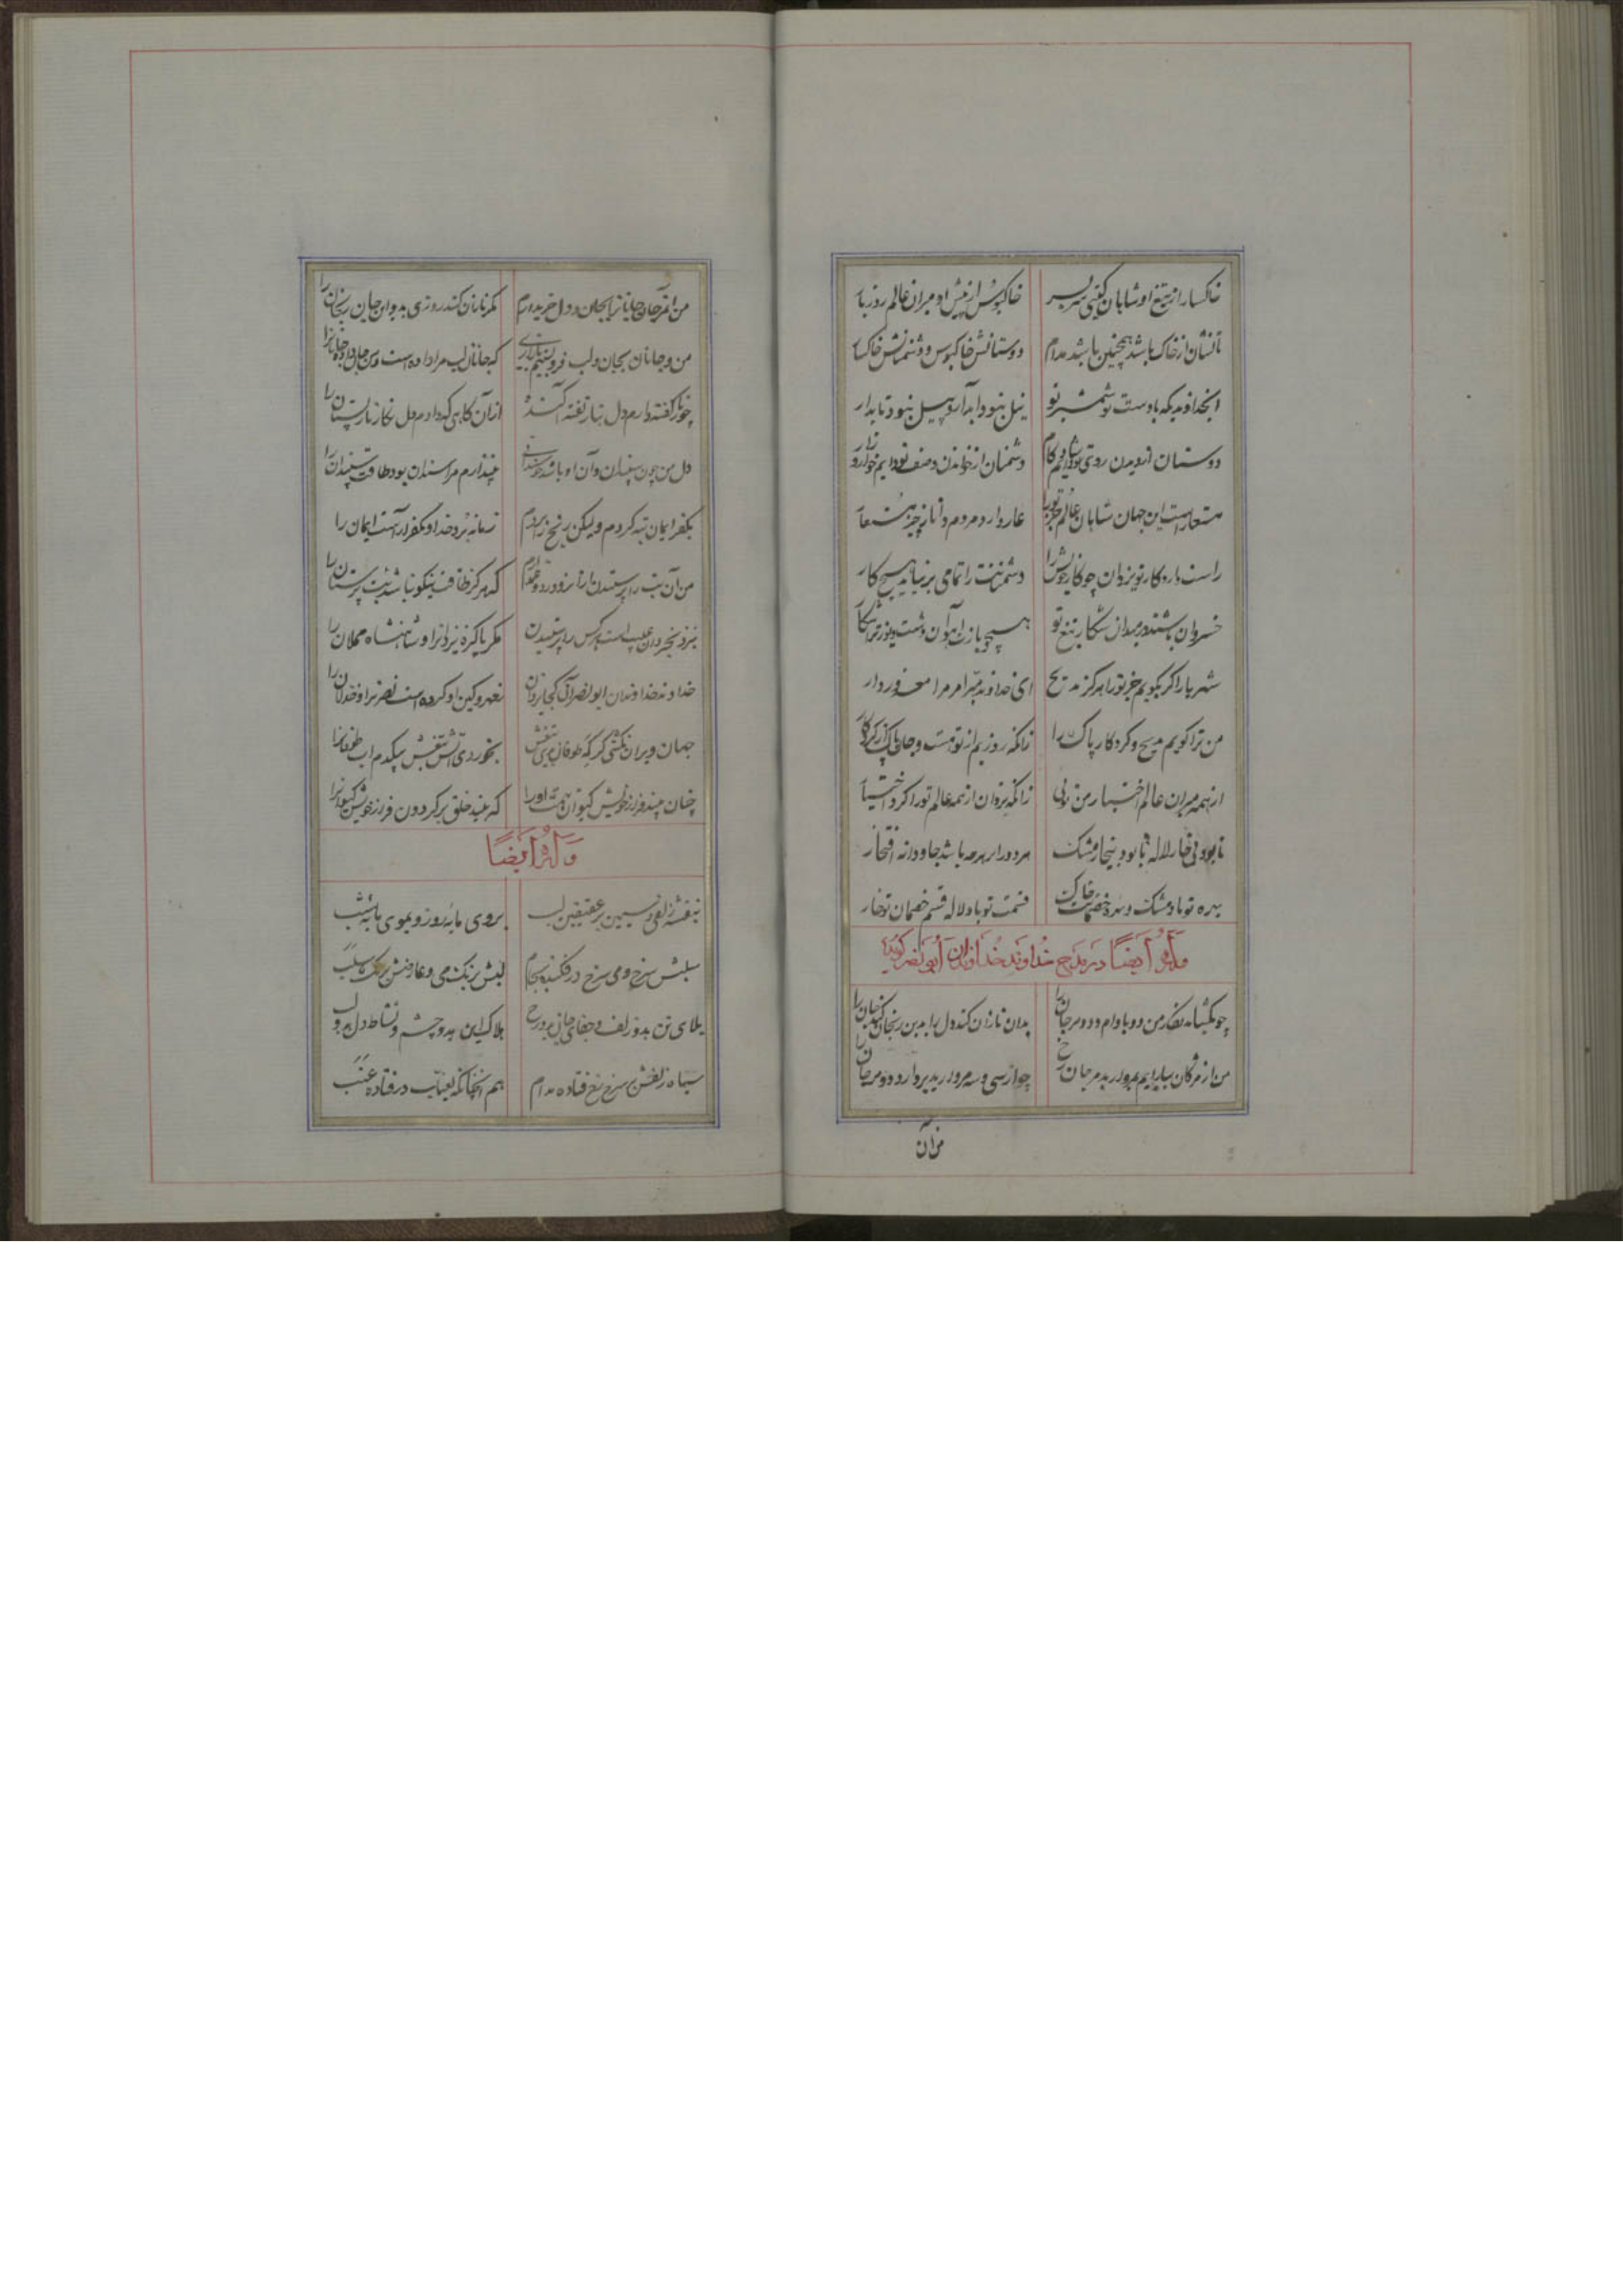 خاکسار از تیغ او شاهان گیتی سر بسر خاکبوس از پیش او میران عالم روز بار
تا نشان از خاک باشد همچنین باشد مدام دوستانش خاکبوس و دشمنانش خاکسار
ایخداوندیکه با دست تو شمشیر تو نیل نبود آبدار و پیل نبود تابدار
دوستان از دیدن روی تو دایم شادکام دشمنان از خواندن وصف تو دایم خوار و زار
مستعار است این جهان شاهان عالم را عار دارد مردم دانا ز چیز مستعار
راست دارد کار تو یزدان چو کار خویش را دشمنت را تمامی بر نیاید هیچ کار
خسروان باشند در میدان شکار تیغ تو همچو بازان را آهوان دشت و یوز را شکار
شهریارا گر بگویم جز تو را هرگز مدیح ای خداوند میر مر مرا معذور دار
من ترا گویم مدیح و کردکار پاک را زانکه روزیم از تو است و جان پاک از کردکار
از همه میران عالم اختیار من توئی زانکه یزدان از همه عالم تو را کرد اختیار
تا بود بی خار لاله تا بود بیخار مشک هر دو را بر هر چه باشد جاودانه افتخار
بهره تو باد مشک و بهره خصمت خاک قسمت تو باد لاله قسم خصمان تو خار
وله ایضا در مدح خداوند خداوندان ابونصر گوید
چو بگشاید نگار من دو بادام و دو مرجان را بدان نازان کند دل را بدین رنجان کند جان را
من از مژگان بیارایم بمروارید مرجان رخ چو از سی و سه مروارید بردارد دو مرجان را
من آن
من آن مرجان جانان را بجان و دل خریدارم مگر نازان کند روزی بدو این جان رنجان را
من و جانان بجان و لب فرو بستیم بازاری که جانان لب مرا داده است و من جان داده جانان را
چو نار کفته دارم دل بنار تفته آکنده از آن گاهی که دادم دل نگار نارپستان را
دل من چون سپندان و آن او باشد چو سندانی نپندارم مر سندان بود طاقت سپندان را
بکفر ایمان تبه کردم ولیکن رنج زو بردم زمانه برد خد او بکفر آراست ایمان را
من آن بت را پرستیدم از آنرو درد و غم دارم که هرگز عاقبت نیکو نباشد بت پرستان را
بنزد بخردان عیب است هر کس را پرستیدن مگر پاکیزه یزدان را و شاهنشاه مملان را
خداوند خداوندان ابونصر آن کجا یزدان ز مهر و کین او کرده است نصرت را و خذلان را
جهان ویران نگشتی گر گه طوفان بدی تیغش بخوردی آتش تیغش بیکدم آب طوفان را
چنان بیند فراز خویش کیوان همت او را که بیند خلق بر گردون فراز خویش کیوان را
وله ایضا
بنفشه زلف و سیمین بر عقیقین لب بروی مایه روز و بموی مایه شب
لبش برنگ می و عارضش برنگ سلب
بلای تن بدو زلف و جفای جان بدو رخ هلاک دین بدو چشم و نشاط دل بدو لب
سیاه زلفش بر سرخ رخ فتاده مدام هم آنچنانکه بعناب در فتاده عنب